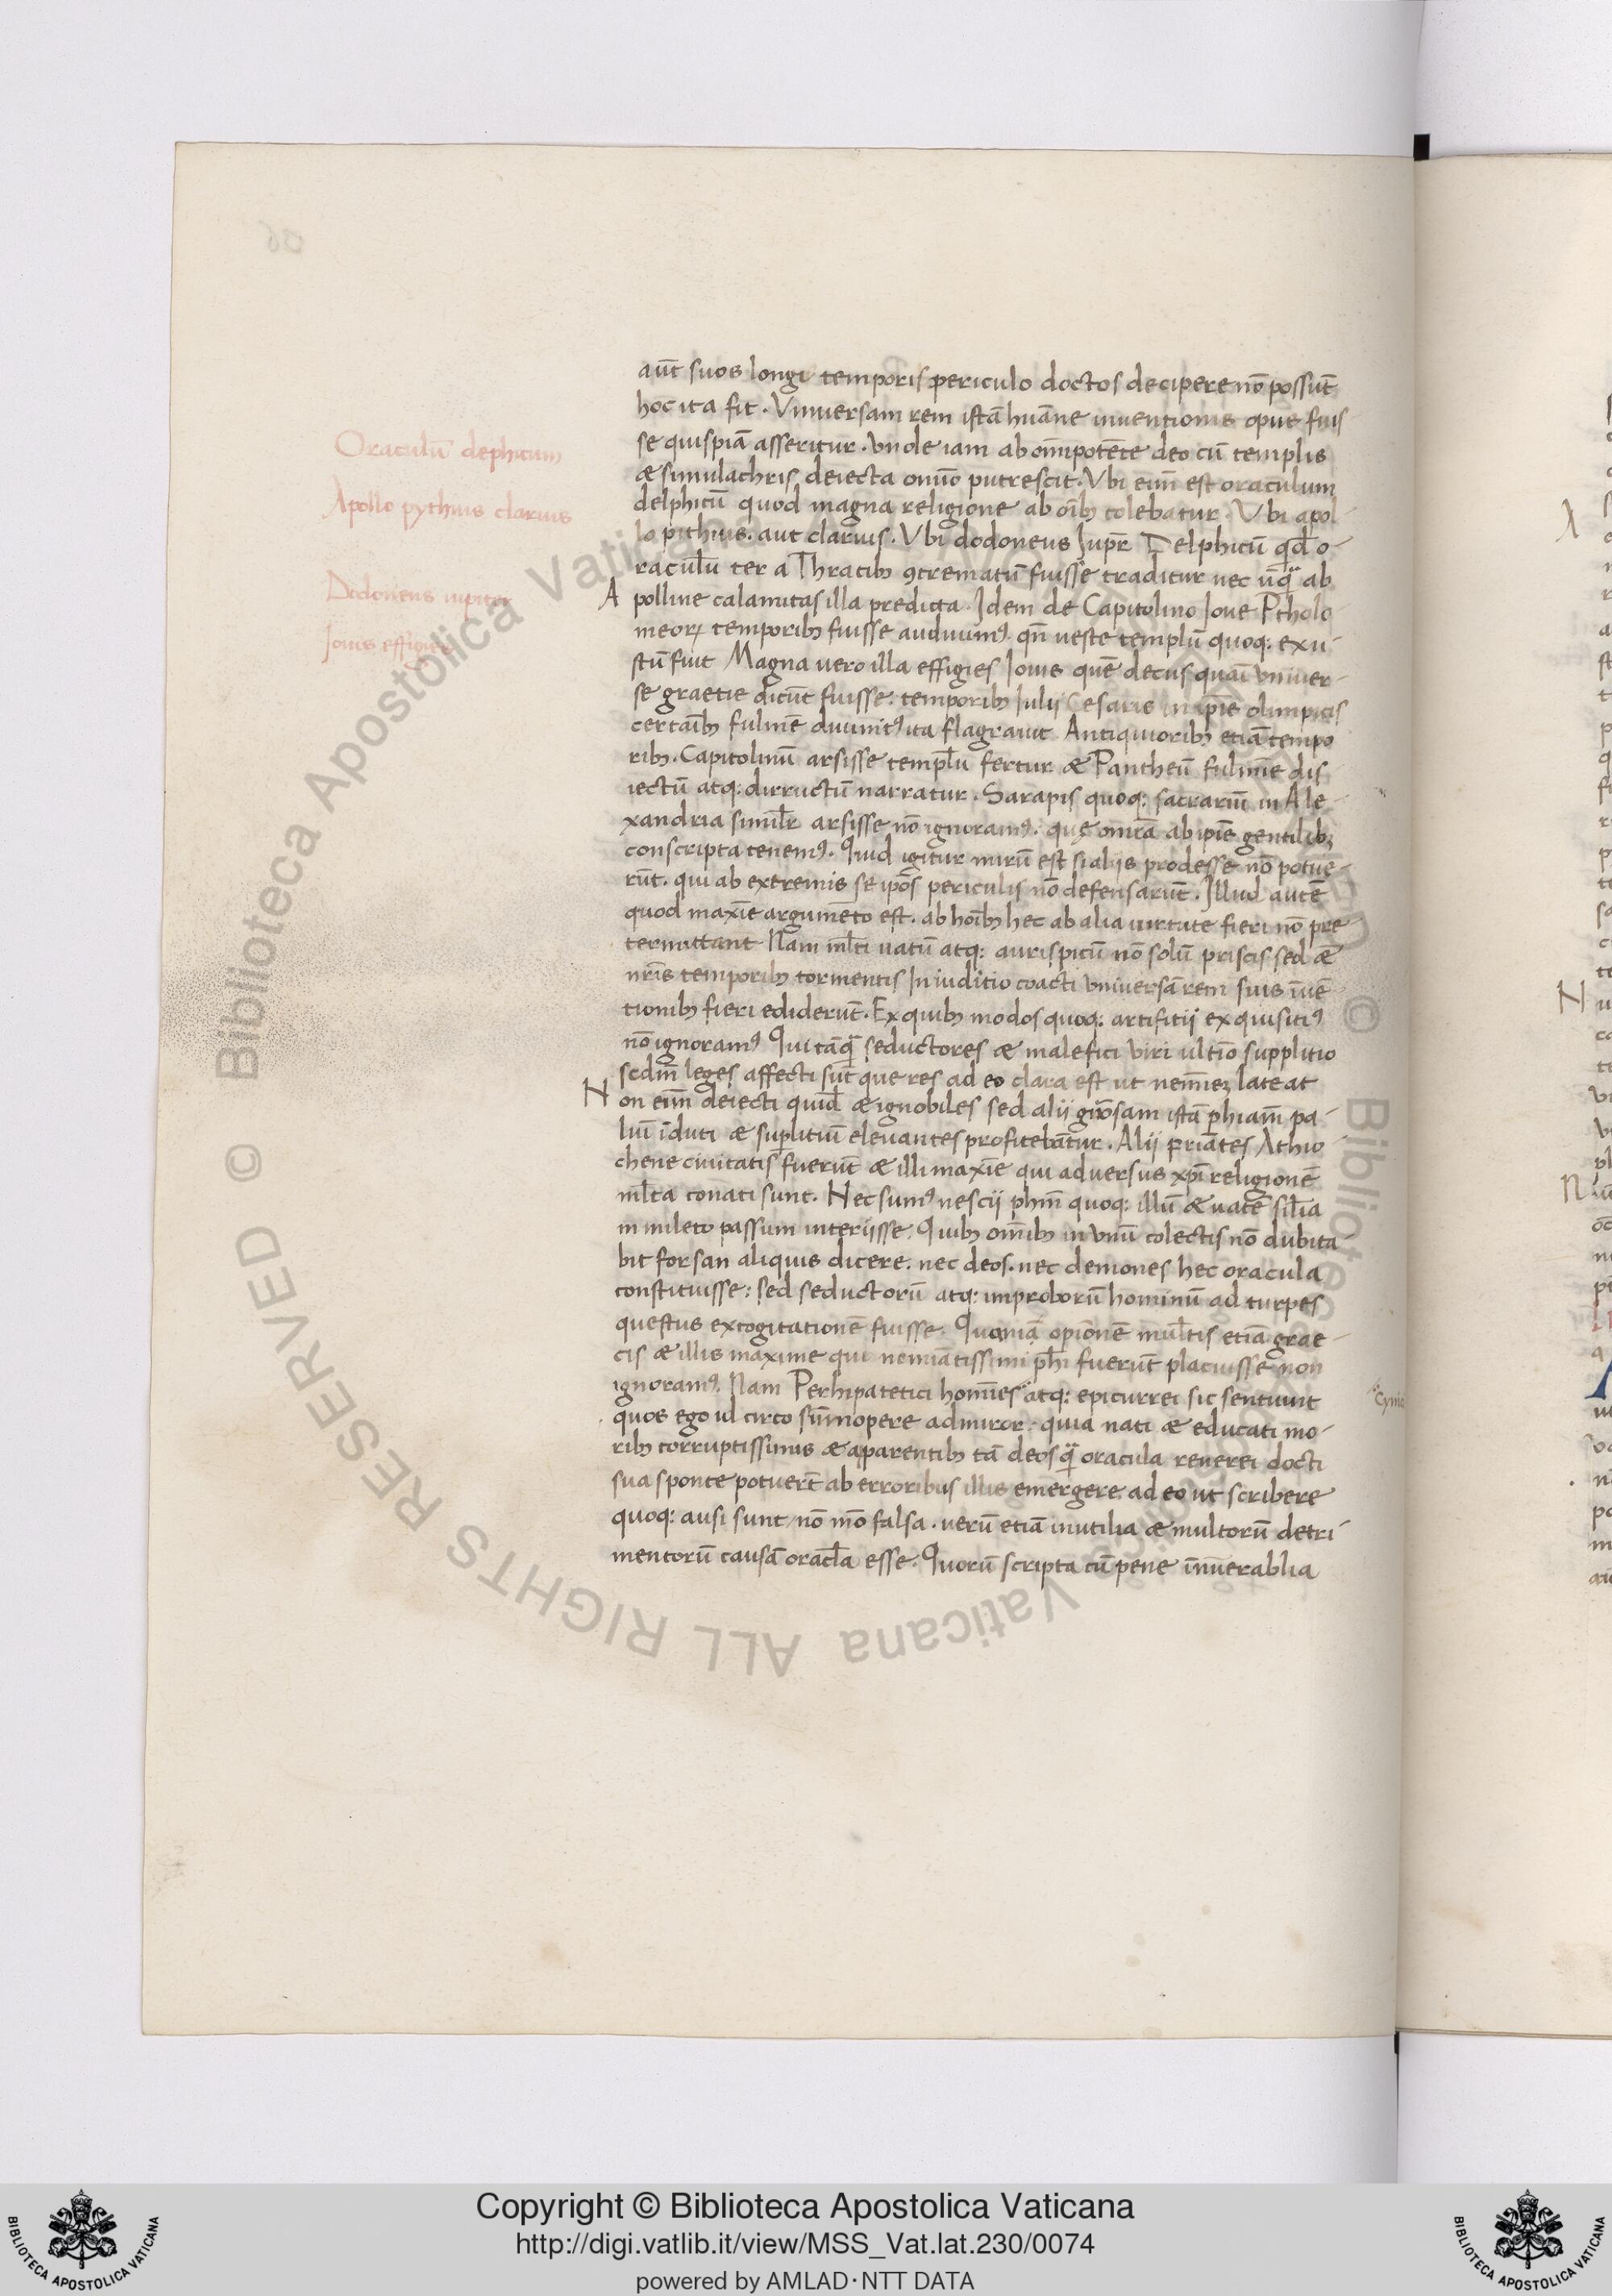 Oraculū dephicum
Apollo pythius clarius
Dodoneus iupiter
Iouis effigies
aūt suos longi temporis periculo doctos decipere nō possūt
hoc ita fit. Vniuersam rem istā huāne inuentionis opus fuis
se quispiā asseritur. vnde iam ab oīnipotēte deo cū templis
& simulachris deiecta omīo putrescit. Vbi eīm est oraculum
delphicū quod magna religione ab oīb; colebatur. Vbi apol
lo pithius. aut clarius. Vbi dodoneus Iupr̄ Delphicū qd̄ o-
raculū ter a Thracib; ꝯcrematū fuisse traditur nec ūq̄ ab
A polline calamitas illa predicta. Idem de Capitolino Ioue Ptholo
meoꝝ temporib; fuisse audiuimꝰ. qn̄ ueste templū quoq: exu-
stū fuit Magna uero illa effigies Iouis quē decus quāi vniuer-
se graetie dicūt fuisse. temporib; Iulij Cesaris in ip̄īe olimpicis
certaīb; fulmē diuinitꝰ ita flagrauit Antiquiorib; etiā tempo
rib;. Capitolinū arsisse templū fertur & Pantheū fulmīe dis
iectū atq: dirructū narratur. Sarapis quoq: sacrariū in Ale-
xandria simil̄r arsisse nō ignoramꝰ. quę omīa ab ip̄is gentilib;
conscripta tenemꝰ. Quid igitur mirū est si alijs prodesse nō potue-
rūt. qui ab extremis se ip̄os periculis nō defensarūt. Illud autē
quod maxīe argumēto est. ab hoīb; hec ab alia uirtute fieri nō pre
termittant Nam ml̄ti uatū atq: aurispicū nō solū priscis sed &
nr̄is temporib; tormentis In iuditio coacti vniuersā rem suis īuē
tionib; fieri ediderūt. Ex quib; modos quoq: artifitij exquisitiꝰ
nō ignoramꝰ Qui tāq̄ seductores & malefici viri ultīo supplitio
scdm̄ leges affecti sūt que res ad eo clara est ut nemīez lateat
N on eīm deiecti quid̄ & ignobiles sed alij gn̄rosam istā phiam̄ pa-
liū īduti & suplitiū eleuantes profitebātur. Alij priātes Athio
chene ciuitatis fuerūt & illi maxīe qui aduersus xp̄i religionē
ml̄ta conati sunt. Nec sumꝰ nescij phm̄ quoq: illū & uatē sil̄ia
in mileto passum interijsse. Quib; omīb; in vnū colectis nō dubita
bit forsan aliquis dicere. nec deos. nec demones hec oracula
constituisse: sed seductorū atq: improborū hominū ad turpes
questus excogitationē fuisse. Quoniā opīonē mul̄tis etiā grae-
cis & illis maxime qui nomīatissimi phī fuerūt placuisse non
ignoramꝰ. Nam Perhipatetici homīes atq: epicurrei sic sentiunt
cynici
quos ego id circo sūmopere admiror. quia nati & educati mo-
rib; corruptissimis & aparentib; tā deos q̄ oracula reuerei docti
sua sponte potuerūt ab erroribus illis emergere ad eo ut scribere
quoq: ausi sunt nō mō falsa. uerū etiā inutilia & multorū detri-
mentorū causā oracl̄a esse. Quorū scripta cū pene īnuerablia
© Biblioteca Apostolica Vaticana ALL RIGHTS RESERVED
Copyright © Biblioteca Apostolica Vaticana
http://digi.vatlib.it/view/MSS_Vat.lat.230/0074
powered by AMLAD·NTT DATA
BIBLIOTECA APOSTOLICA VATICANA
BIBLIOTECA APOSTOLICA VATICANA